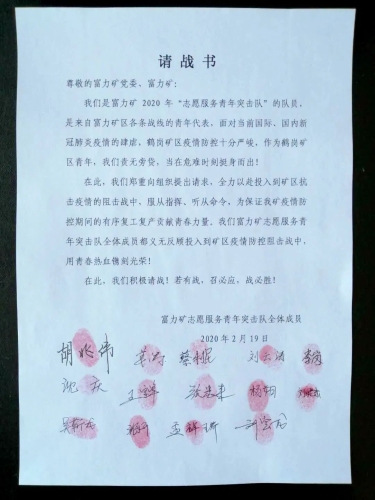 请战书
尊敬的富力矿党委、富力矿：
我们是富力矿 2020 年“志愿服务青年突击队”的队员，
是来自富力矿区各条战线的青年代表，面对当前国际、国内新
冠肺炎疫情的肆虐，鹤岗矿区疫情防控十分严峻，作为鹤岗矿
区青年，我们责无旁贷，当在危难时刻挺身而出！
在此，我们郑重向组织提出请求，全力以赴投入到矿区抗
击疫情的阻击战中，服从指挥、听从命令，为保证我矿疫情防
控期间的有序复工复产贡献青春力量。我们富力矿志愿服务青
年突击队全体成员都义无反顾投入到矿区疫情防控阻击战中，
用青春热血镌刻光荣！
在此，我们积极请战！若有战，召必应，战必胜！
富力矿志愿服务青年突击队全体成员
2020 年 2 月 19 日
胡兆伟
沈庆 杨朝